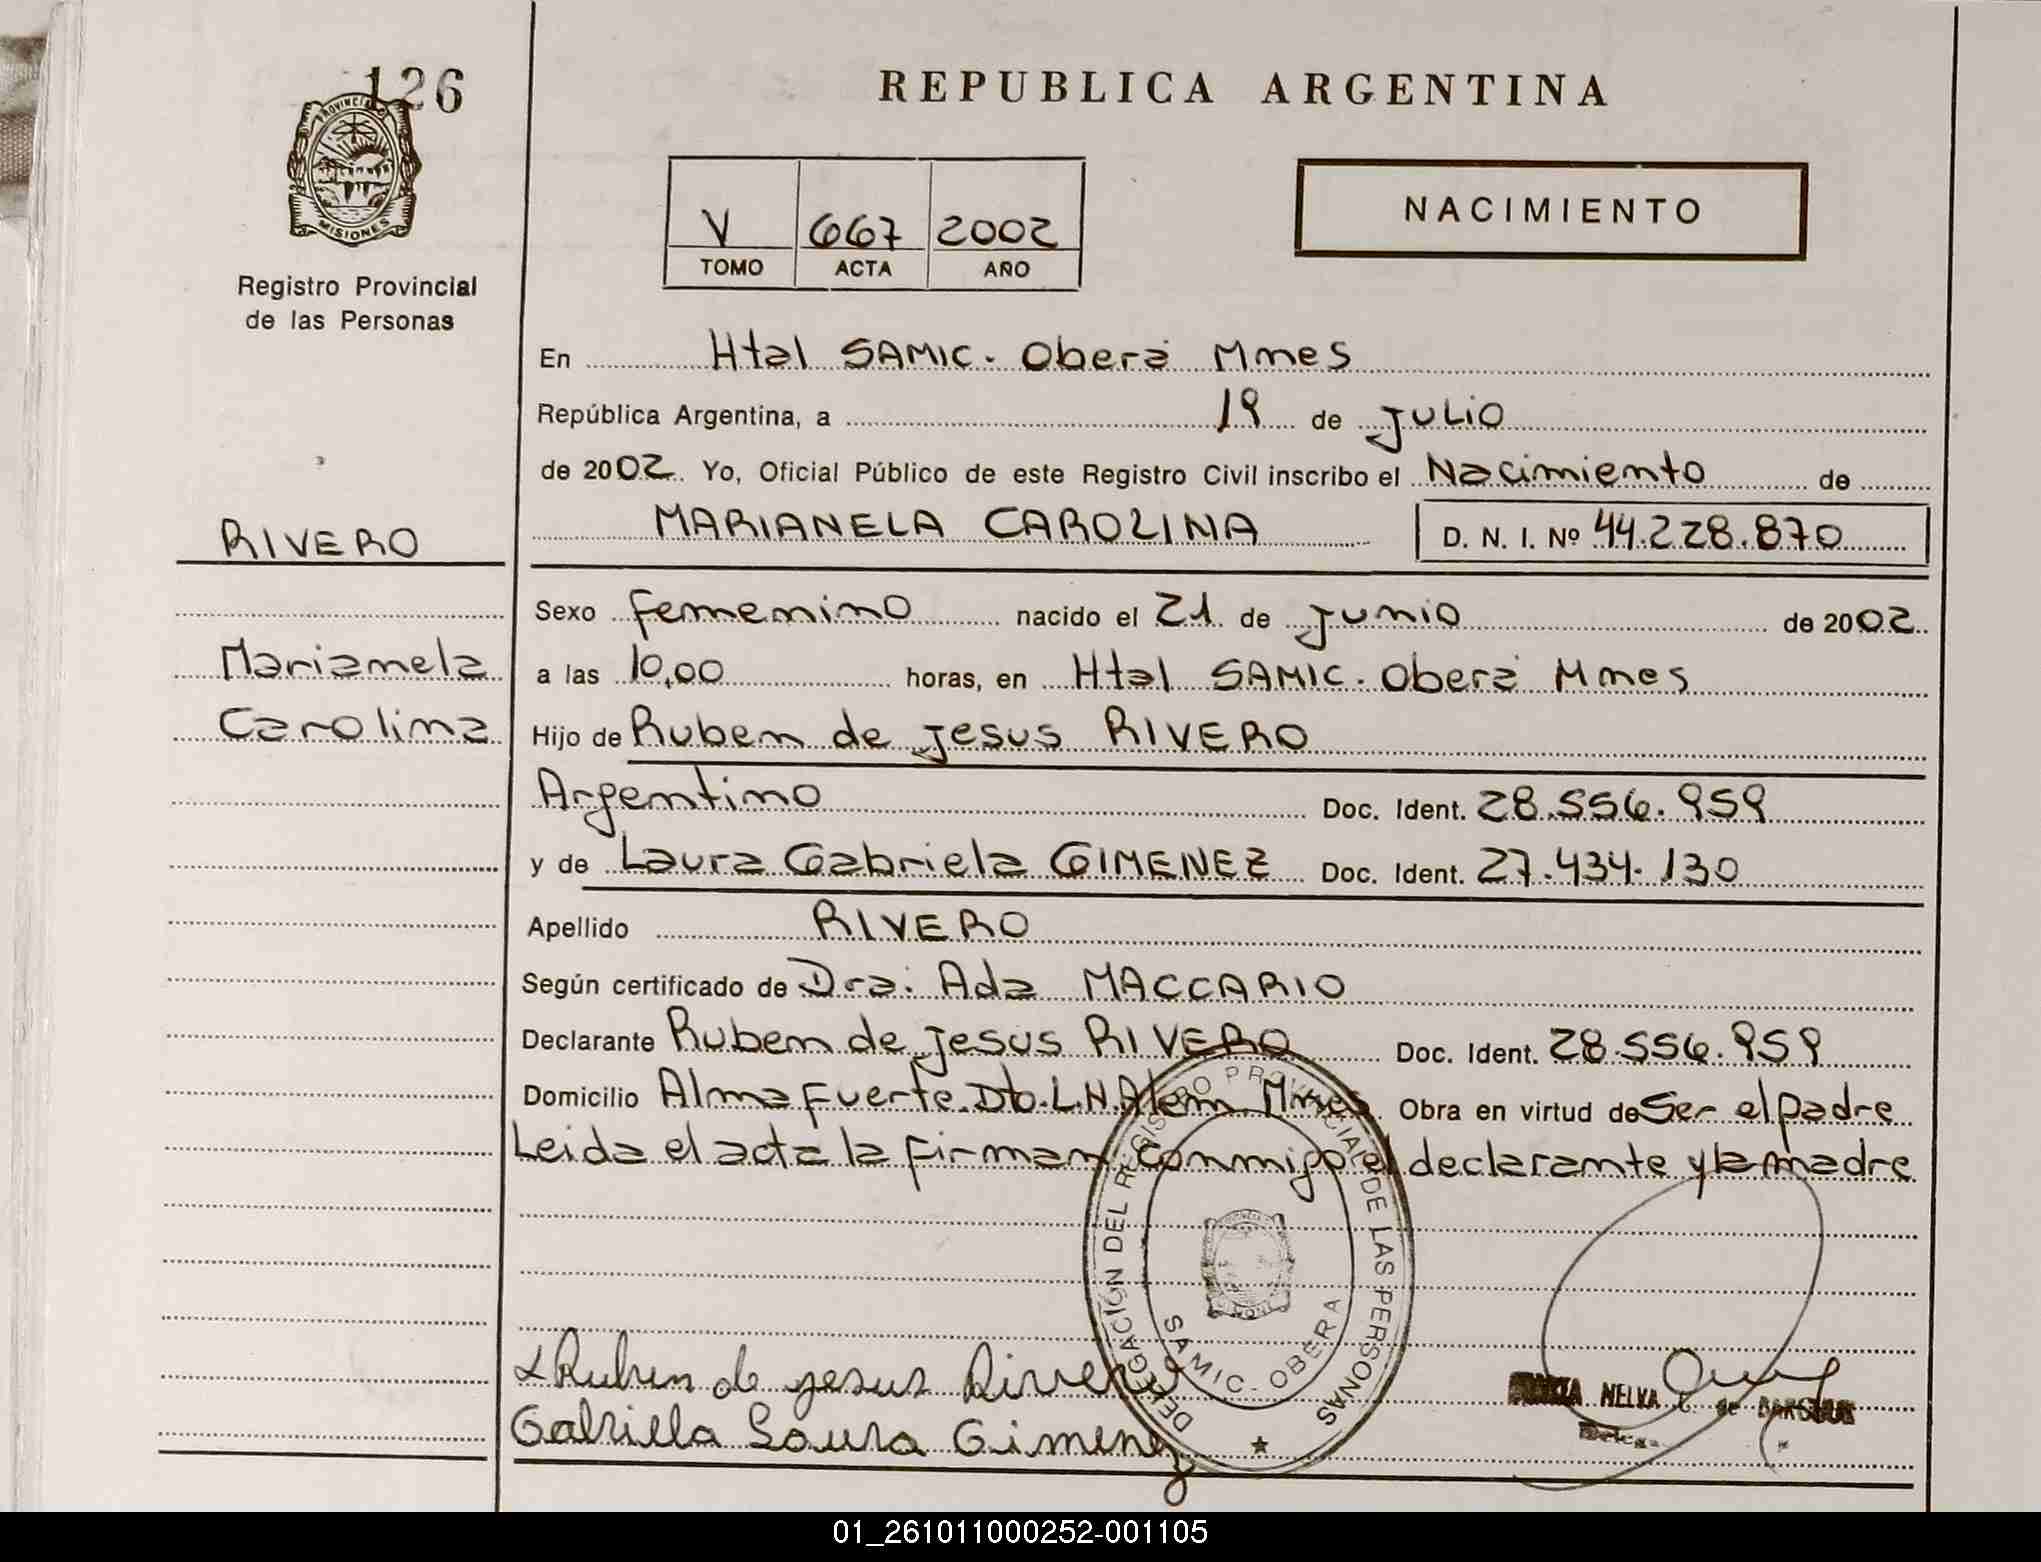 126
REPUBLICA ARGENTINA
PROVINCIA DE
MISIONES
Registro Provincial
de las Personas
V 667 2002
TOMO ACTA AÑO
NACIMIENTO
En Htal SAMIC. Oberá Mnes
República Argentina, a 19 de Julio
de 2002. Yo, Oficial Público de este Registro Civil inscribo el Nacimiento de
MARIANELA CAROLINA D. N. I. Nº 44.228.870
RIVERO
Marianela
Carolina
Sexo femenino nacido el 21 de Junio de 2002.
a las 10,00 horas, en Htal SAMIC. Oberá Mnes
Hijo de Ruben de Jesus RIVERO
Argentino Doc. Ident. 28.556.959
y de Laura Gabriela GIMENEZ Doc. Ident. 27.434.130
Apellido RIVERO
Según certificado de Dra. Ada MACCARIO
Declarante Ruben de Jesus RIVERO Doc. Ident. 28.556.959
Domicilio Alma Fuerte. Dto. L.N.Alem Mnes Obra en virtud de Ser el padre
Leida el acta la firman conmigo el declarante y la madre
DELEGACIÓN DEL REGISTRO PROVINCIAL DE LAS PERSONAS
SAMIC - OBERA
Ruben de Jesus Rivero
Gabriella Laura Gimenez
NELVA de
01_261011000252-001105